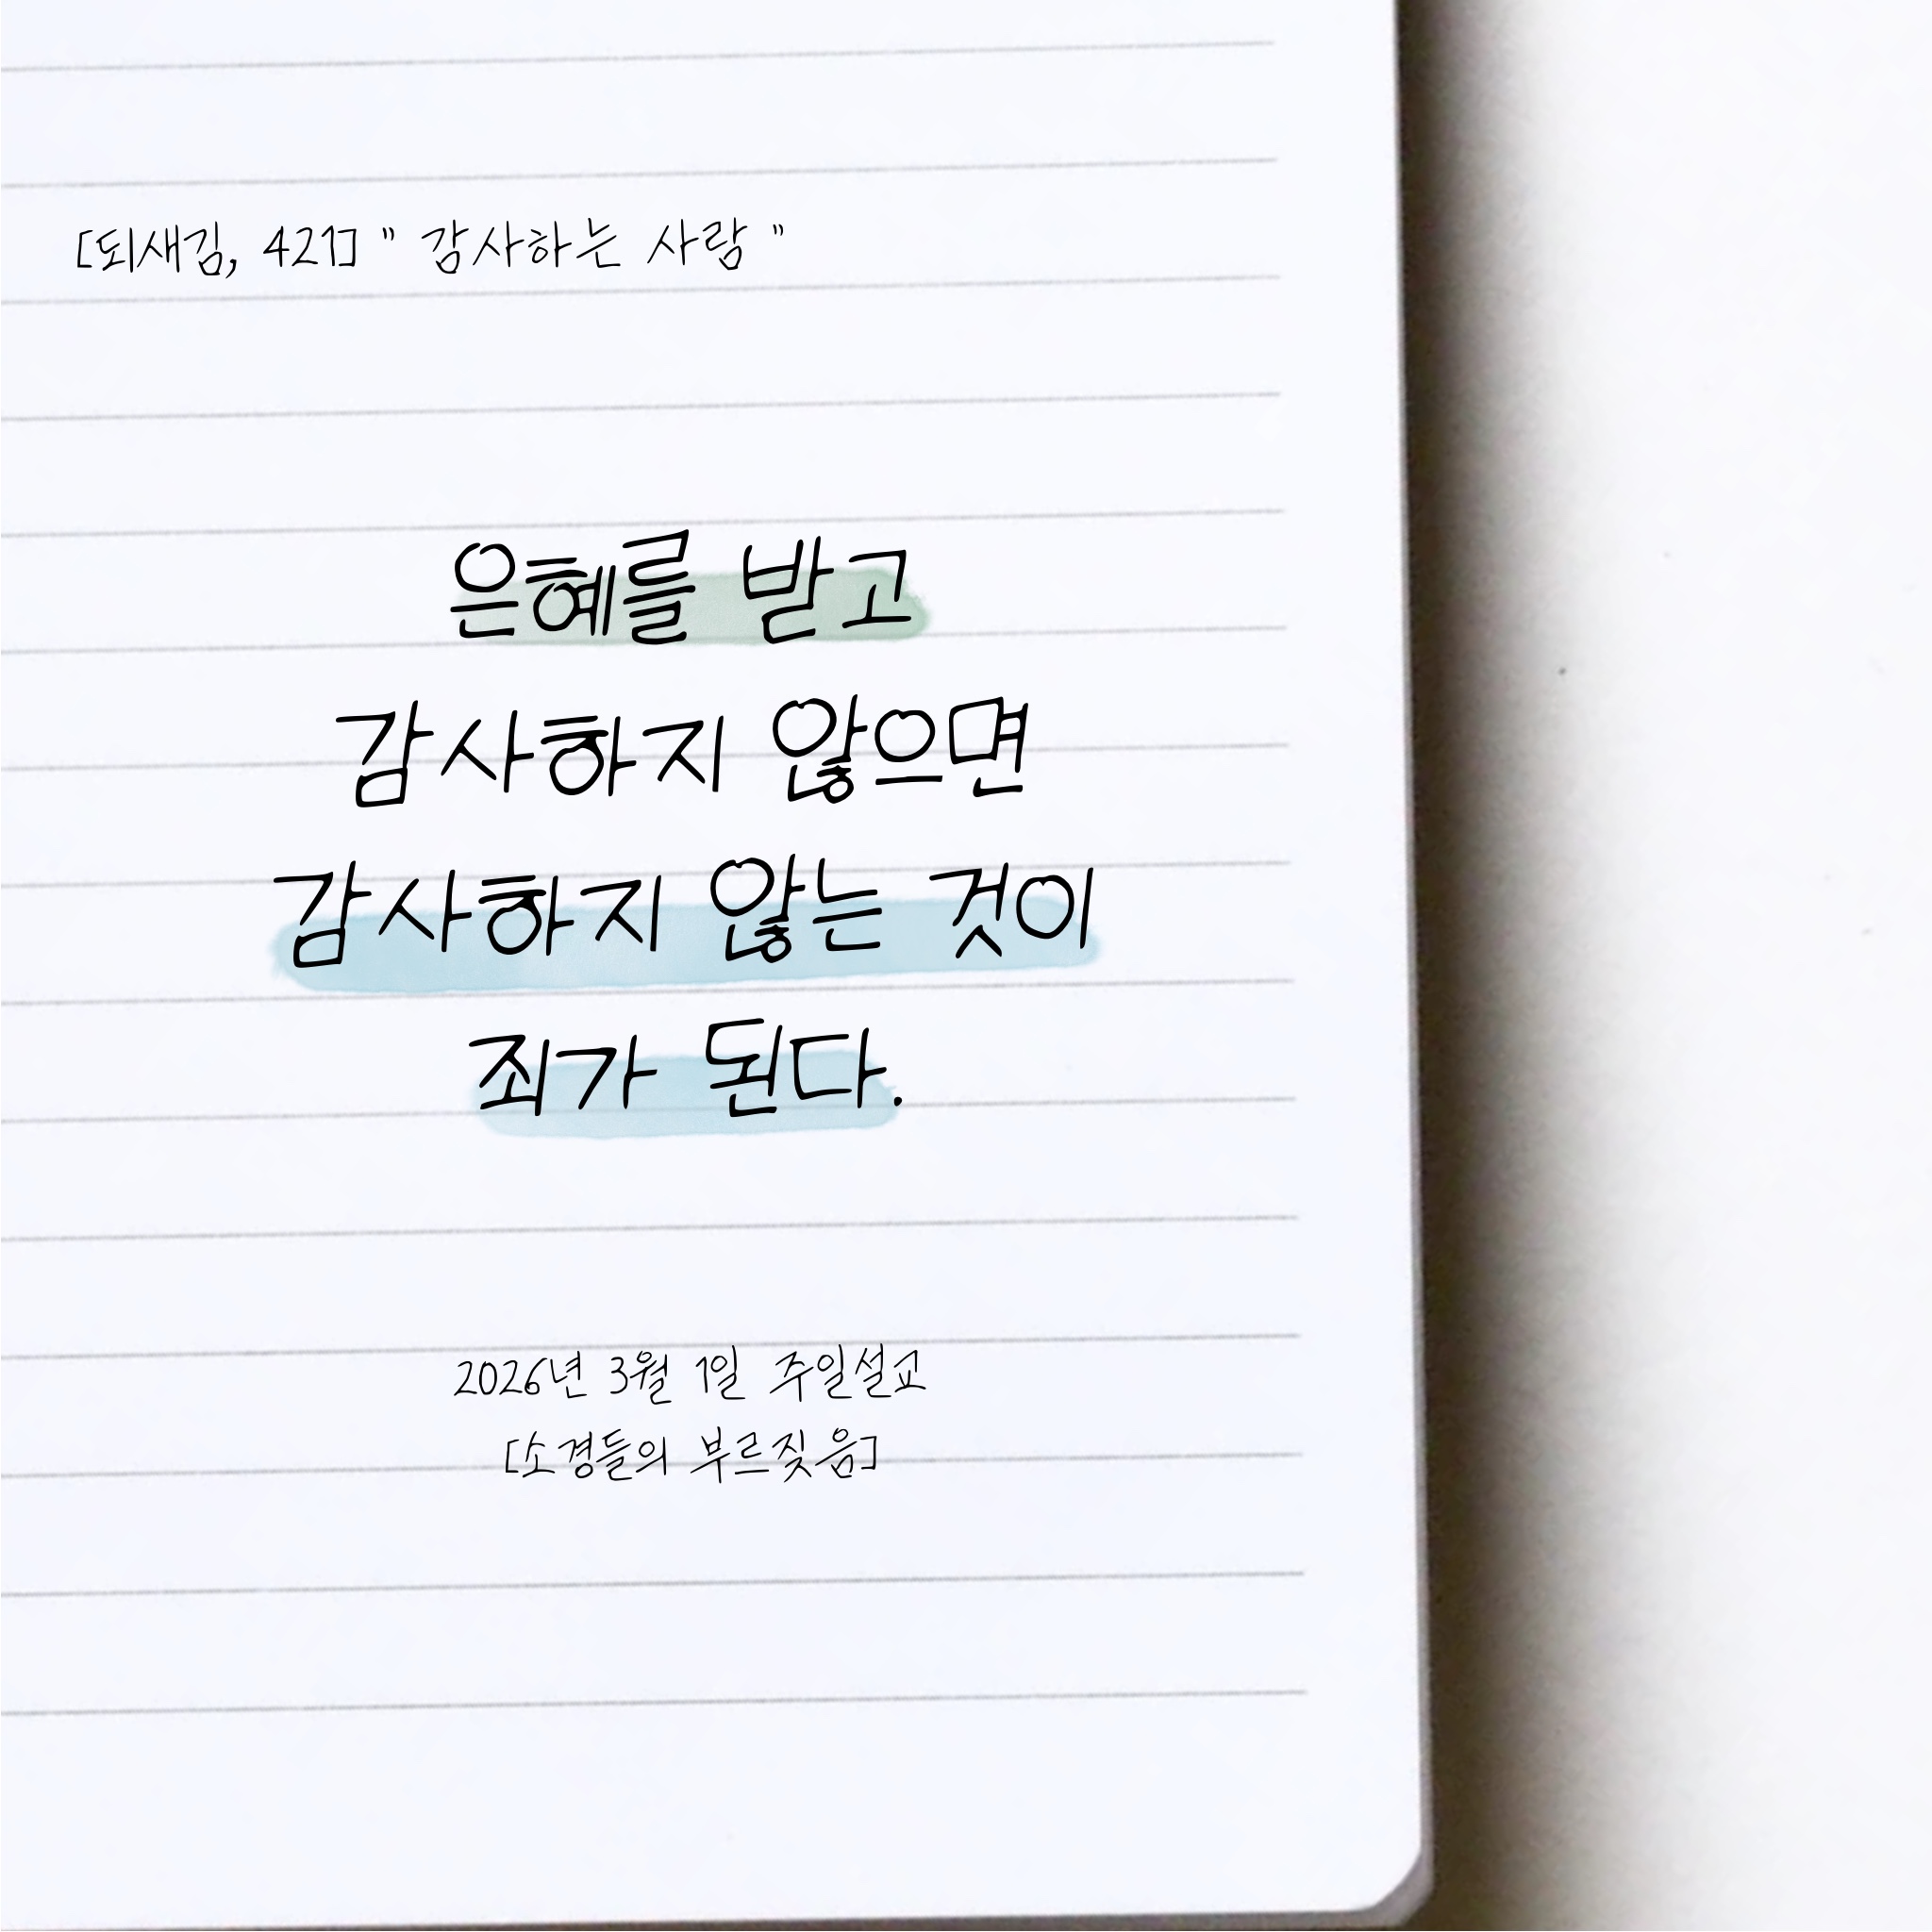 [되새김, 421] " 감사하는 사람 "
은혜를 받고
감사하지 않으면
감사하지 않는 것이
죄가 된다.
2026년 3월 1일 주일설교
[소경들의 부르짖음]